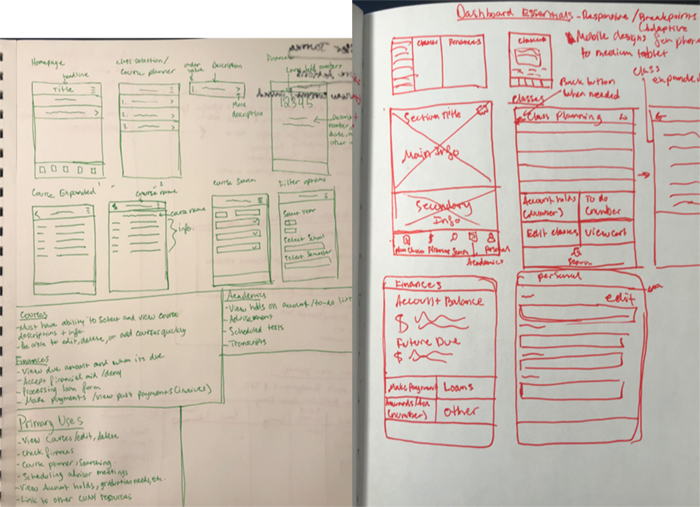 Homepage
Title
class selection/
course planner
order
value
Description
More
description
12345
Course Expanded
Course name
course name
info.
Course Search
Filter options
Select Year
Select School
Select Semester
Courses
-Must have ability to select and view course
descriptions + info
-Be able to edit, delete, or add courses quickly
Finances
-View due amount and when its due
-Accept financial aid/deny
-Processing loan form
-Make payments/view past payments
Academics
-View holds on account/to-do list
-Advisement
-Scheduled tests
-Transcripts
Primary Uses
-View Courses/edit, delete
-Check finances
-Course planner, searching
-Scheduling advisor meetings
-View Account holds, graduation needs, etc.
-Link to other CUNY resources
Dashboard Essentials - Responsive/Breakpoints
(Adaptive
Mobile designs for phone
to medium tablet
classes
Finances
classes
Back button
when needed
class
expanded
Section Title
Main Info
Secondary
Info
Finances
Search
Personal
Academics
classes
Class Planning
Account holds
(number)
To do
(number
Edit classes
View cart
Search
Finances
Account Balance
$
Future Due
$
Make payment
Loans
(number)
other
personal
edit